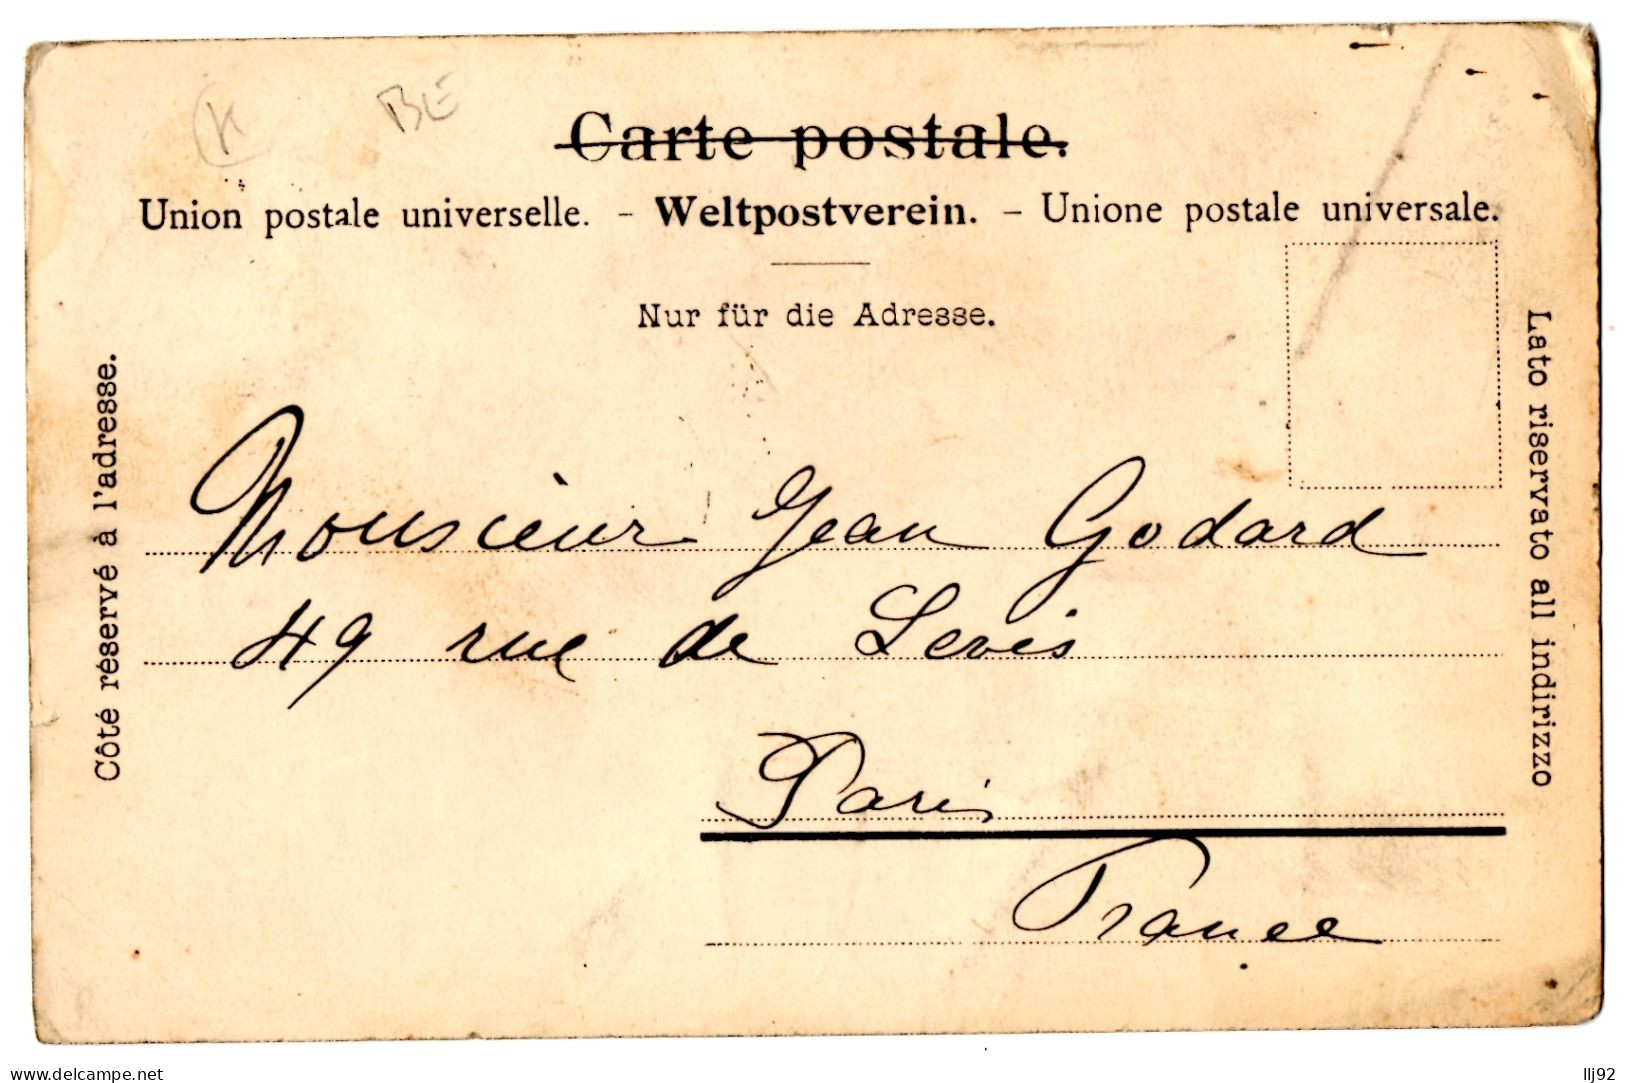 K BE
Carte postale.
Union postale universelle. - Weltpostverein. - Unione postale universale.
Nur für die Adresse.
Côté réservé à l'adresse.
Lato riservato all indirizzo
Monsieur Jean Godard
49 rue de Levis
Paris
France
www.delcampe.net
llj92